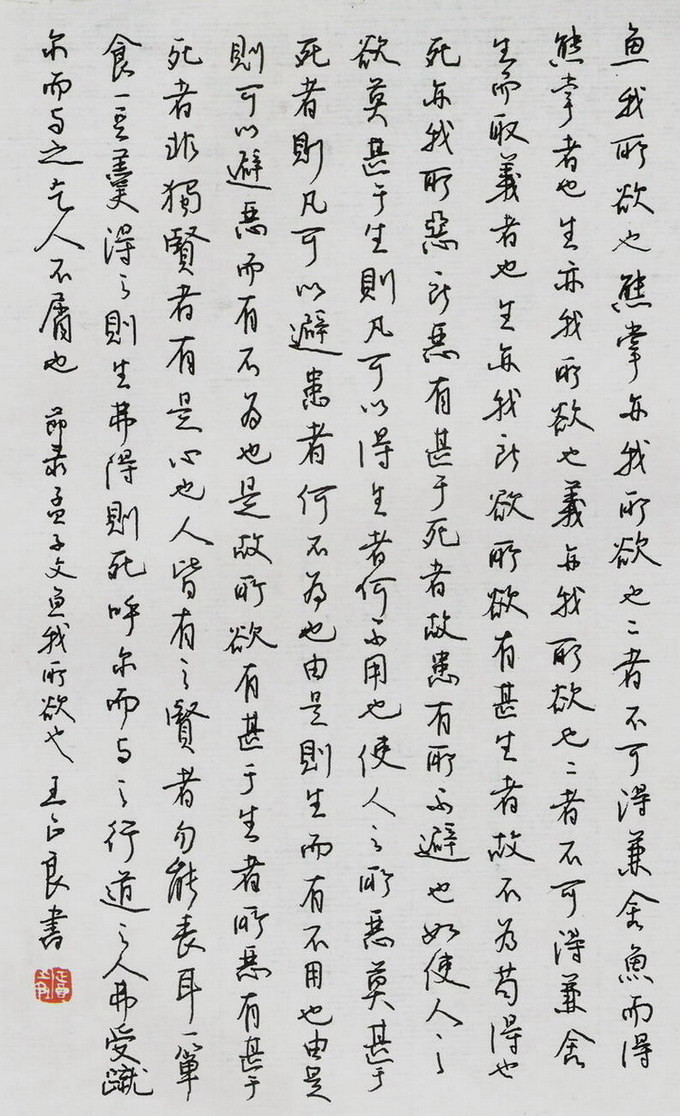 魚我所欲也熊掌亦我所欲也二者不可得兼舍魚而得
熊掌者也生亦我所欲也義亦我所欲也二者不可得兼舍
生而取義者也生亦我所欲所欲有甚生者故不为苟得也
死亦我所惡所惡有甚于死者故患有所不避也如使人之
欲莫甚于生則凡可以得生者何不用也使人之所惡莫甚于
死者則凡可以避患者何不为也由是則生而有不用也由是
則可以避惡而有不为也是故所欲有甚于生者所惡有甚于
死者非獨賢者有是心也人皆有之賢者勿能喪耳一簞
食一豆羹得之則生弗得則死呼尔而与之行道之人弗受蹴
尔而与之乞人不屑也 節录孟子文魚我所欲也 王正良書